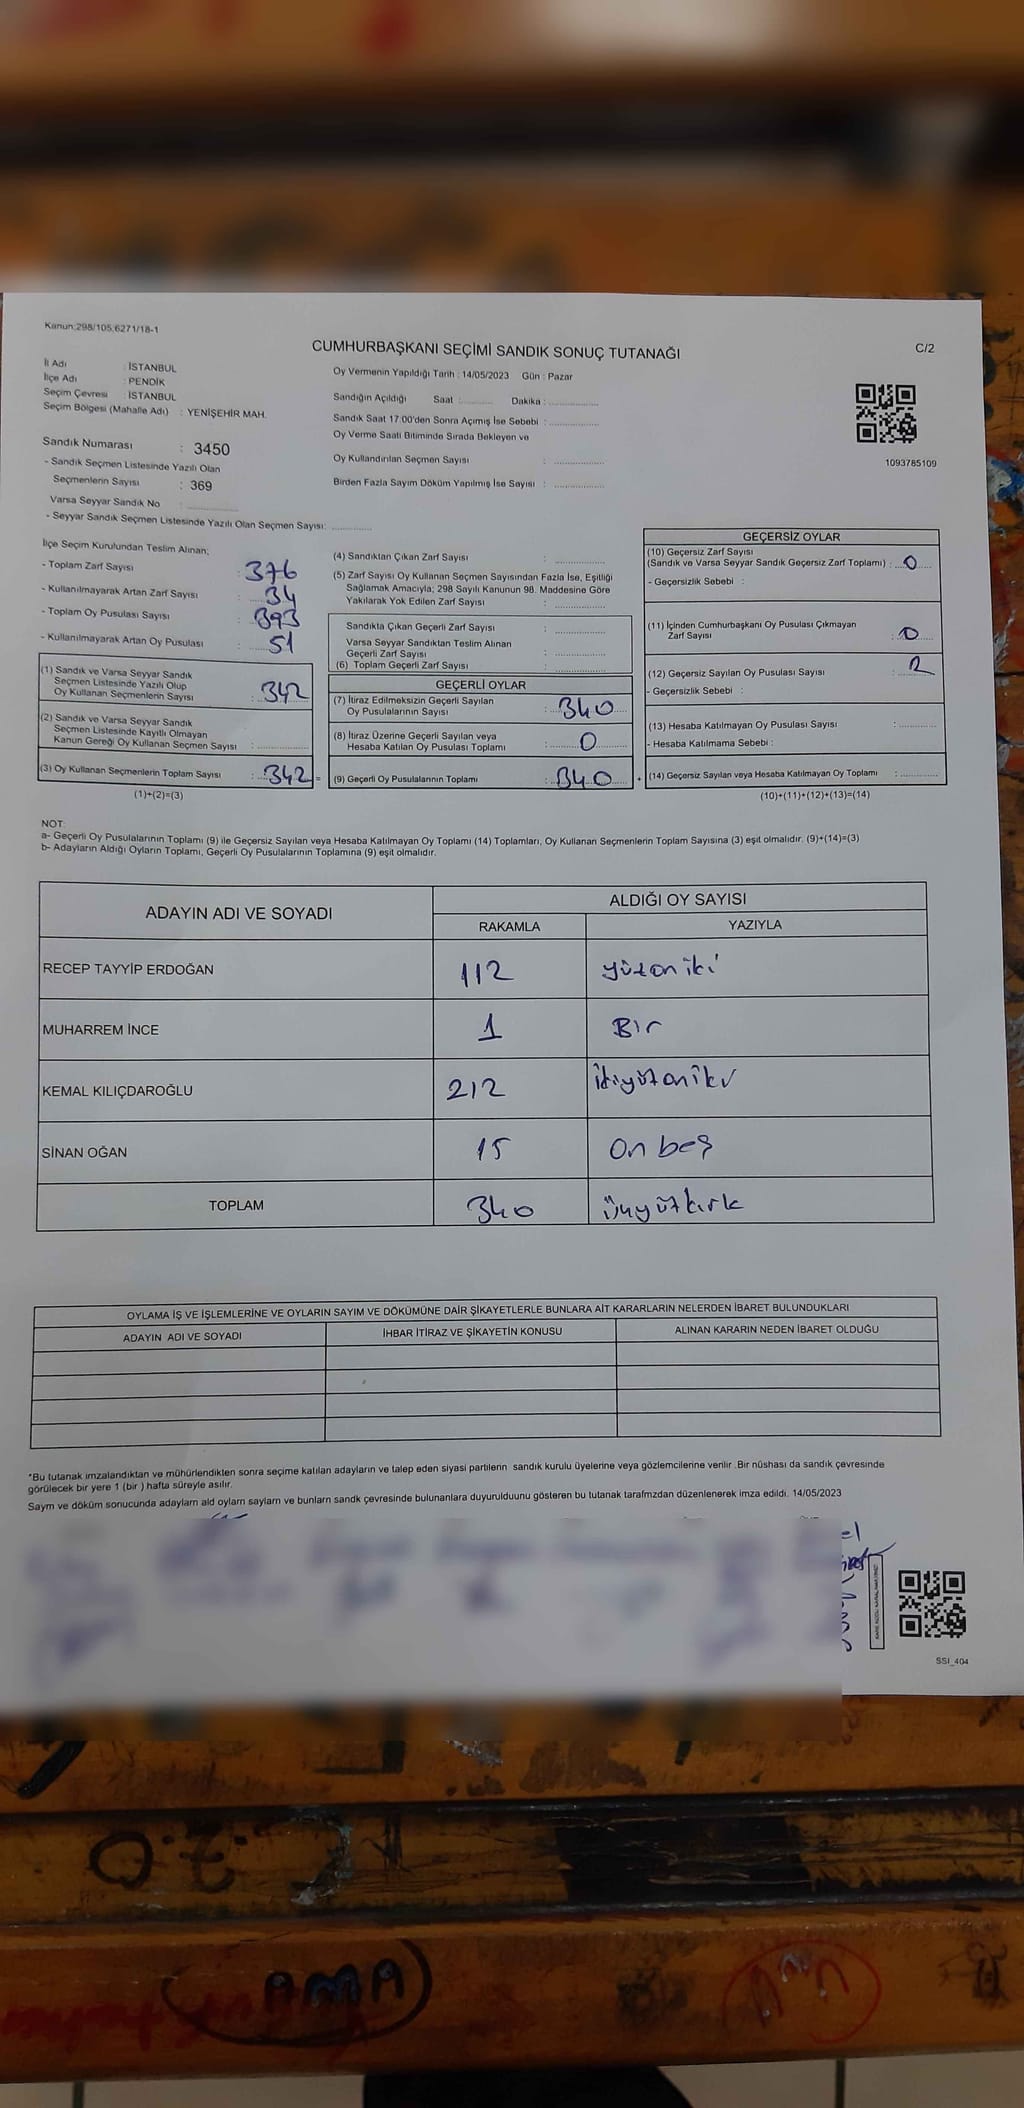 Kanun:298/105;6271/18-1
CUMHURBAŞKANI SEÇİMİ SANDIK SONUÇ TUTANAĞI
C/2
İl Adı : İSTANBUL
İlçe Adı : PENDİK
Seçim Çevresi : İSTANBUL
Seçim Bölgesi (Mahalle Adı) : YENİŞEHİR MAH.
Sandık Numarası : 3450
- Sandık Seçmen Listesinde Yazılı Olan
Seçmenlerin Sayısı : 369
Varsa Seyyar Sandık No :
- Seyyar Sandık Seçmen Listesinde Yazılı Olan Seçmen Sayısı:
Oy Vermenin Yapıldığı Tarih : 14/05/2023 Gün : Pazar
Sandığın Açıldığı Saat : Dakika :
Sandık Saat 17:00'den Sonra Açımış İse Sebebi :
Oy Verme Saati Bitiminde Sırada Bekleyen ve
Oy Kullandırılan Seçmen Sayısı :
Birden Fazla Sayım Döküm Yapılmış İse Sayısı :
1093785109
İlçe Seçim Kurulundan Teslim Alınan;
- Toplam Zarf Sayısı : 376
- Kullanılmayarak Artan Zarf Sayısı : 34
- Toplam Oy Pusulası Sayısı : 393
- Kullanılmayarak Artan Oy Pusulası : 51
(1) Sandık ve Varsa Seyyar Sandık
Seçmen Listesinde Yazılı Olup
Oy Kullanan Seçmenlerin Sayısı : 342
(2) Sandık ve Varsa Seyyar Sandık
Seçmen Listesinde Kayıtlı Olmayan
Kanun Gereği Oy Kullanan Seçmen Sayısı :
(3) Oy Kullanan Seçmenlerin Toplam Sayısı : 342 =
(1)+(2)=(3)
(4) Sandıktan Çıkan Zarf Sayısı :
(5) Zarf Sayısı Oy Kullanan Seçmen Sayısından Fazla İse, Eşitliği
Sağlamak Amacıyla; 298 Sayılı Kanunun 98. Maddesine Göre
Yakılarak Yok Edilen Zarf Sayısı :
Sandıkta Çıkan Geçerli Zarf Sayısı :
Varsa Seyyar Sandıktan Teslim Alınan
Geçerli Zarf Sayısı :
(6) Toplam Geçerli Zarf Sayısı :
GEÇERLİ OYLAR
(7) İtiraz Edilmeksizin Geçerli Sayılan
Oy Pusulalarının Sayısı : 340
(8) İtiraz Üzerine Geçerli Sayılan veya
Hesaba Katılan Oy Pusulası Toplamı : 0
(9) Geçerli Oy Pusulalarının Toplamı : 340 +
GEÇERSİZ OYLAR
(10) Geçersiz Zarf Sayısı
(Sandık ve Varsa Seyyar Sandık Geçersiz Zarf Toplamı) : 0
- Geçersizlik Sebebi :
(11) İçinden Cumhurbaşkanı Oy Pusulası Çıkmayan
Zarf Sayısı : 0
(12) Geçersiz Sayılan Oy Pusulası Sayısı : 2
- Geçersizlik Sebebi :
(13) Hesaba Katılmayan Oy Pusulası Sayısı :
- Hesaba Katılmama Sebebi :
(14) Geçersiz Sayılan veya Hesaba Katılmayan Oy Toplamı :
(10)+(11)+(12)+(13)=(14)
NOT:
a- Geçerli Oy Pusulalarının Toplamı (9) ile Geçersiz Sayılan veya Hesaba Katılmayan Oy Toplamı (14) Toplamları, Oy Kullanan Seçmenlerin Toplam Sayısına (3) eşit olmalıdır. (9)+(14)=(3)
b- Adayların Aldığı Oyların Toplamı, Geçerli Oy Pusulalarının Toplamına (9) eşit olmalıdır.
ADAYIN ADI VE SOYADI
ALDIĞI OY SAYISI
RAKAMLA YAZIYLA
RECEP TAYYİP ERDOĞAN 112 yüzoniki
MUHARREM İNCE 1 Bir
KEMAL KILIÇDAROĞLU 212 ikiyüzoniki
SİNAN OĞAN 15 On beş
TOPLAM 340 üçyüzkırk
OYLAMA İŞ VE İŞLEMLERİNE VE OYLARIN SAYIM VE DÖKÜMÜNE DAİR ŞİKAYETLERLE BUNLARA AİT KARARLARIN NELERDEN İBARET BULUNDUKLARI
ADAYIN ADI VE SOYADI İHBAR İTİRAZ VE ŞİKAYETİN KONUSU ALINAN KARARIN NEDEN İBARET OLDUĞU
*Bu tutanak imzalandıktan ve mühürlendikten sonra seçime katılan adayların ve talep eden siyasi partilerin sandık kurulu üyelerine veya gözlemcilerine verilir .Bir nüshası da sandık çevresinde
görülecek bir yere 1 (bir ) hafta süreyle asılır.
Saym ve döküm sonucunda adaylarn ald oylarn saylarn ve bunlarn sandk çevresinde bulunanlara duyurulduunu gösteren bu tutanak tarafmzdan düzenlenerek imza edildi. 14/05/2023
SSI_404
AMA